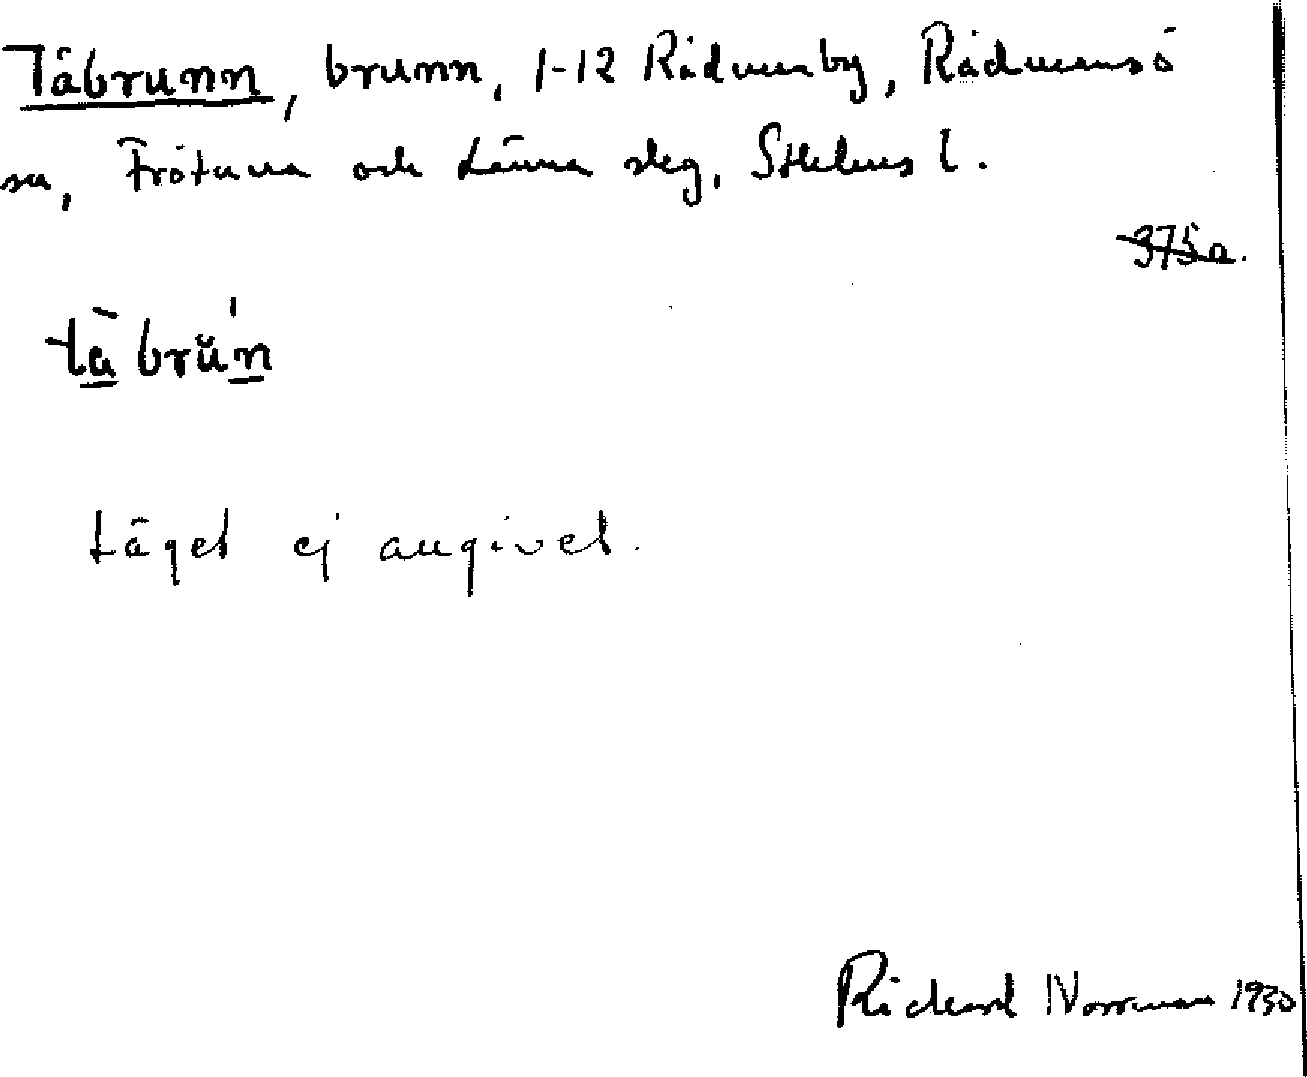 Tåbrunn, brunn, 1-12 Rådmanby, Rådmansö
sn, Frötuna och Länna skg, Sthlms l.
375a.
tà brŭ´n
Läget ej angivet.
Rickard Norrman 1930